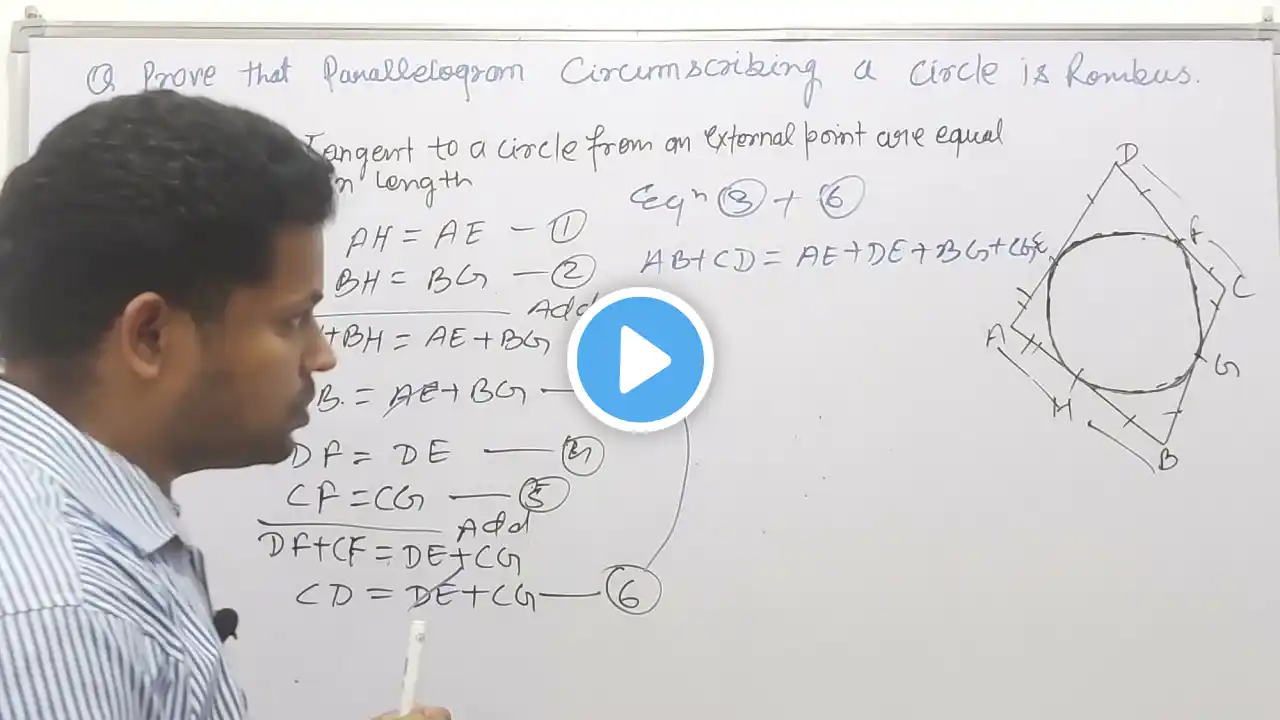 Q Prove that Parallelogram Circumscribing a circle is Rombus.
Tangent to a circle from an external point are equal
in length
AH = AE — ①
BH = BG — ②
Add
+BH = AE + BG
B. = AE + BG —
DF = DE —
CF = CG — ⑤
Add
DF+CF = DE+CG
CD = DE+CG — ⑥
Eqⁿ ③ + ⑥
AB+CD = AE+DE+BG+CG
D
F
E
C
A
G
H
B